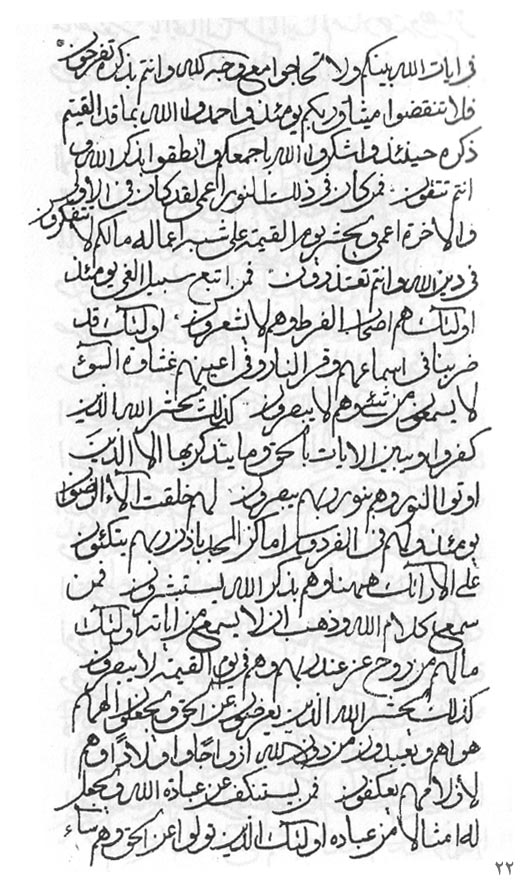 فی ایات الله بینکم ولا تحاجوا مع وجبه کله وانتم بذکره تفرحون
فلا تنقضوا میثاق ربکم یومئذ واحمدوا الله بما قد القیتم
ذکره حینئذ واشکروا الله باجمعکم وانطقوا بذکر الله و
انتم تتقون فمن کان فی ذلک النور اعمی لقد کان فی الاولی
والاخرة اعمی ویحشر یوم القیمة علی شبه اعماله مالکم لا تتفکرون
فی دین الله وانتم تعتذرون فمن اتبع سبیل الغی یومئذ
اولئک هم اصحاب الفرط وهم لا یشعرون اولئک قد
ضربنا فی اسماعهم وقر النار وفی اعینهم غشاوة السوء
لا یسمعون من شیء وهم لا یبصرون کذلک یحشر الله الذین
کفروا ویبین الایات بالحق وما یتذکر بها الا الذین
اوتوا النور وهم بنور ربهم یبصرون لهم خلقت الاء الرضوان
یومئذ ولهم فی الفردوس اماکن المجد باذن ربهم یتکئون
علی الارائک هیهنا وهم بذکر الله یستبشرون فمن
سمع کلام الله وذهب کان لا یسمع من ایاته اولئک
مالهم من روح عن عند ربهم وهم فی یوم القیمة لا یبصرون
کذلک یحشر الله الذین یعرضون عن الحق ویجعلون الههم
هواهم ویعبدون من دون الله ازواجا واولادا وهم
لاولادهم یعکفون فمن یستنکف عن عبادة الله ویجعل
له امثالا من عباده اولئک الذین تولوا عن الحق وهم ساء
٢٢